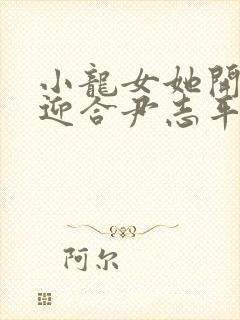 小龍女她開
迎合尹志平
阿尔